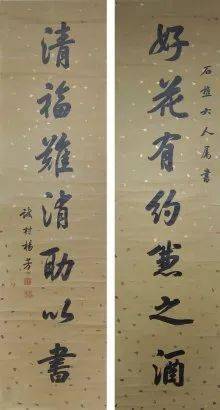 好花有約之酒
石盤大人屬書
清福難消助以書
誠村楊芳